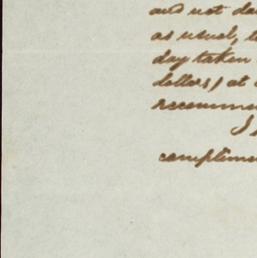 and not da
as usual, t
day taken
dollars) at
recomme
I
complime